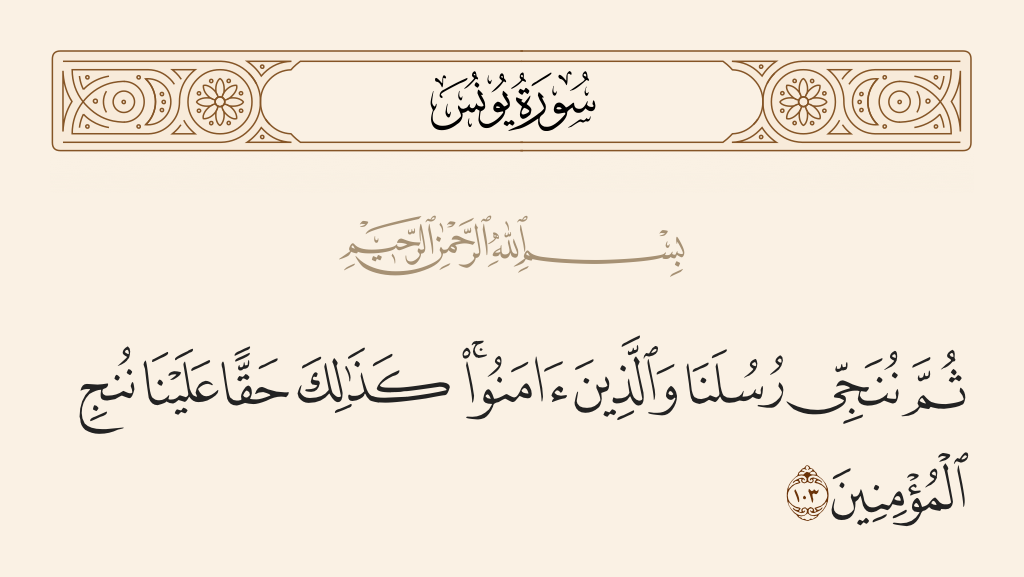 سُورَةُ يُونُسَ
بِسْمِ ٱللَّهِ ٱلرَّحْمَٰنِ ٱلرَّحِيمِ
ثُمَّ نُنَجِّى رُسُلَنَا وَٱلَّذِينَ ءَامَنُوا۟ ۚ كَذَٰلِكَ حَقًّا عَلَيْنَا نُنجِ
ٱلْمُؤْمِنِينَ ١٠٣